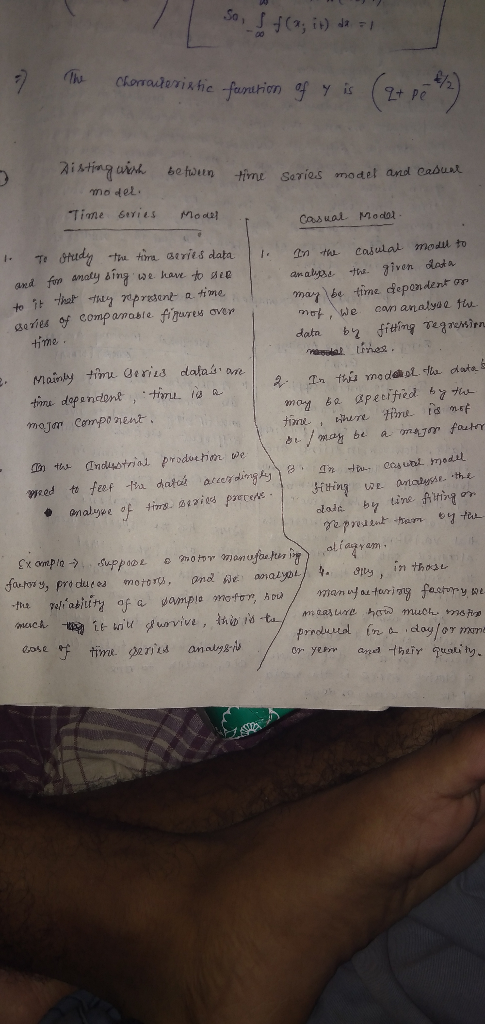 So, ∫ f(x; it) dx = 1
-∞
⇒) The characteristic function of Y is (q+ pe^-t/2)
Distinguish between time series model and casual
model.
Time series Model
1. To study the time series data
and for analysing we have to see
to it that they represent a time
series of companable figures over
time.
2. Mainly time series data's are
time dependent, time is a
major component.
In the Industrial production we
need to feet the data's accordingly
analyse of time series process.
Example → suppose a motor manufacturing
factory, produces motors, and we analyse
the reliability of a sample motor, how
much it will survive, this is the
case of time series analysis
Casual Model.
1. In the casulal model to
analyse the given data
may be time dependent or
not, we can analyse the
data by fitting regression
lines.
2. In this model the data's
may be specified by the
time, where time is not
be / may be a major factor
3. In the casual model
fitting we analyse the
data by line fitting or
represent them by the
diagram.
4. in those
manufacturing factory we
measure how much motor
produced in a day/or
or year and their quality.